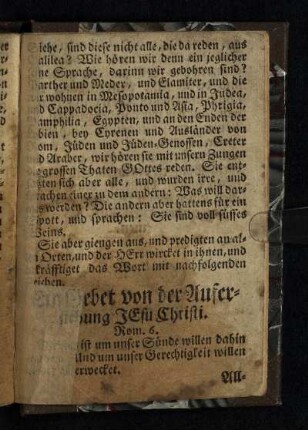 Siehe, sind diese nicht alle, die da reden, aus
alilea? Wie hören wir denn ein jeglicher
ne Sprache, darinn wir gebohren sind?
arther und Meder, und Elamiter, und die
r wohnen in Mesopotamia, und in Judea,
d Cappadocia, Ponto und Asia, Phrigia,
amphilia, Egypten, und an den Enden der
bien, bey Cyrenen und Ausländer von
om, Jüden und Jüden-Genossen, Creter
d Araber, wir hören sie mit unsern Zungen
grossen Thaten GOttes reden. Sie ent-
tzten sich aber alle, und wurden irre, und
rachen einer zu dem andern: Was will dar-
us werden? Die andern aber hattens für ein
pott, und sprachen: Sie sind voll süsses
Weins.
Sie aber giengen aus, und predigten an al-
n Orten, und der HErr wircket in ihnen, und
kräfftiget das Wort mit nachfolgenden
eichen.
Gebet von der Aufer-
hung JEsu Christi.
Rom. 6.
ist um unser Sünde willen dahin
und um unser Gerechtigkeit willen
erwecket.
All-